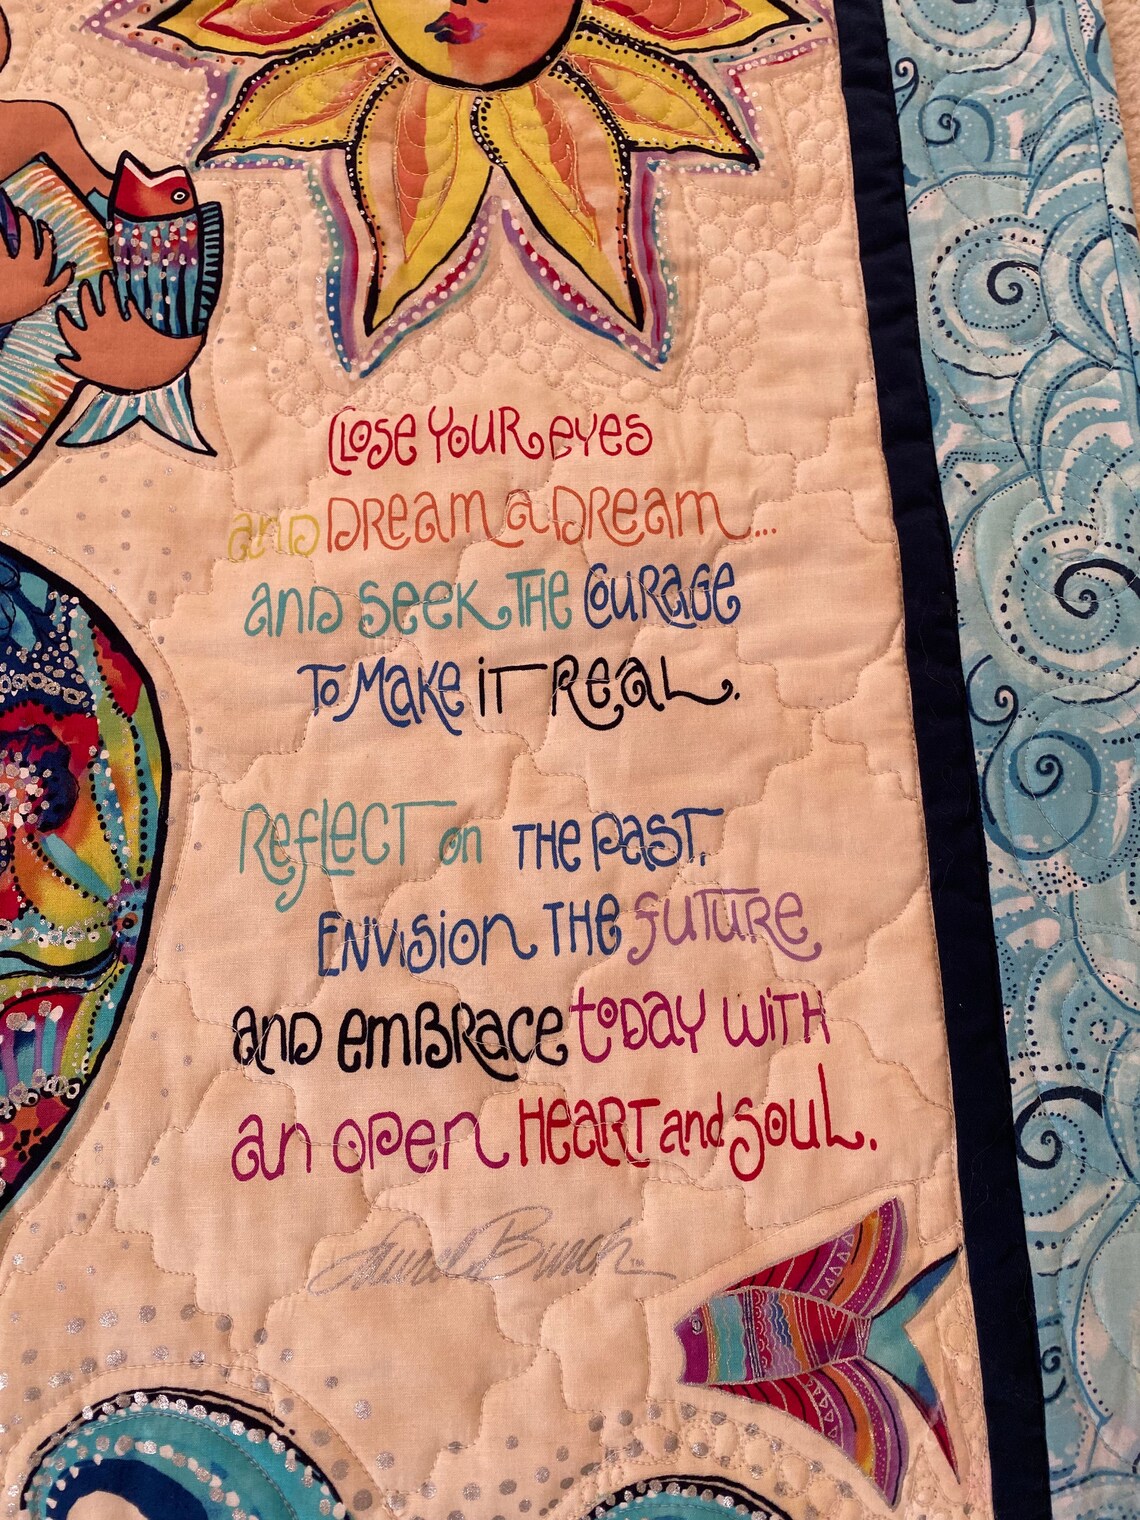 CLOSE YOUR EYES
AND DREAM A DREAM...
AND SEEK THE COURAGE
TO MAKE IT REAL.
REFLECT on THE PAST,
ENVISION THE FUTURE
AND EMBRACE TODAY WITH
AN OPEN HEART AND SOUL.
Laurel Burch